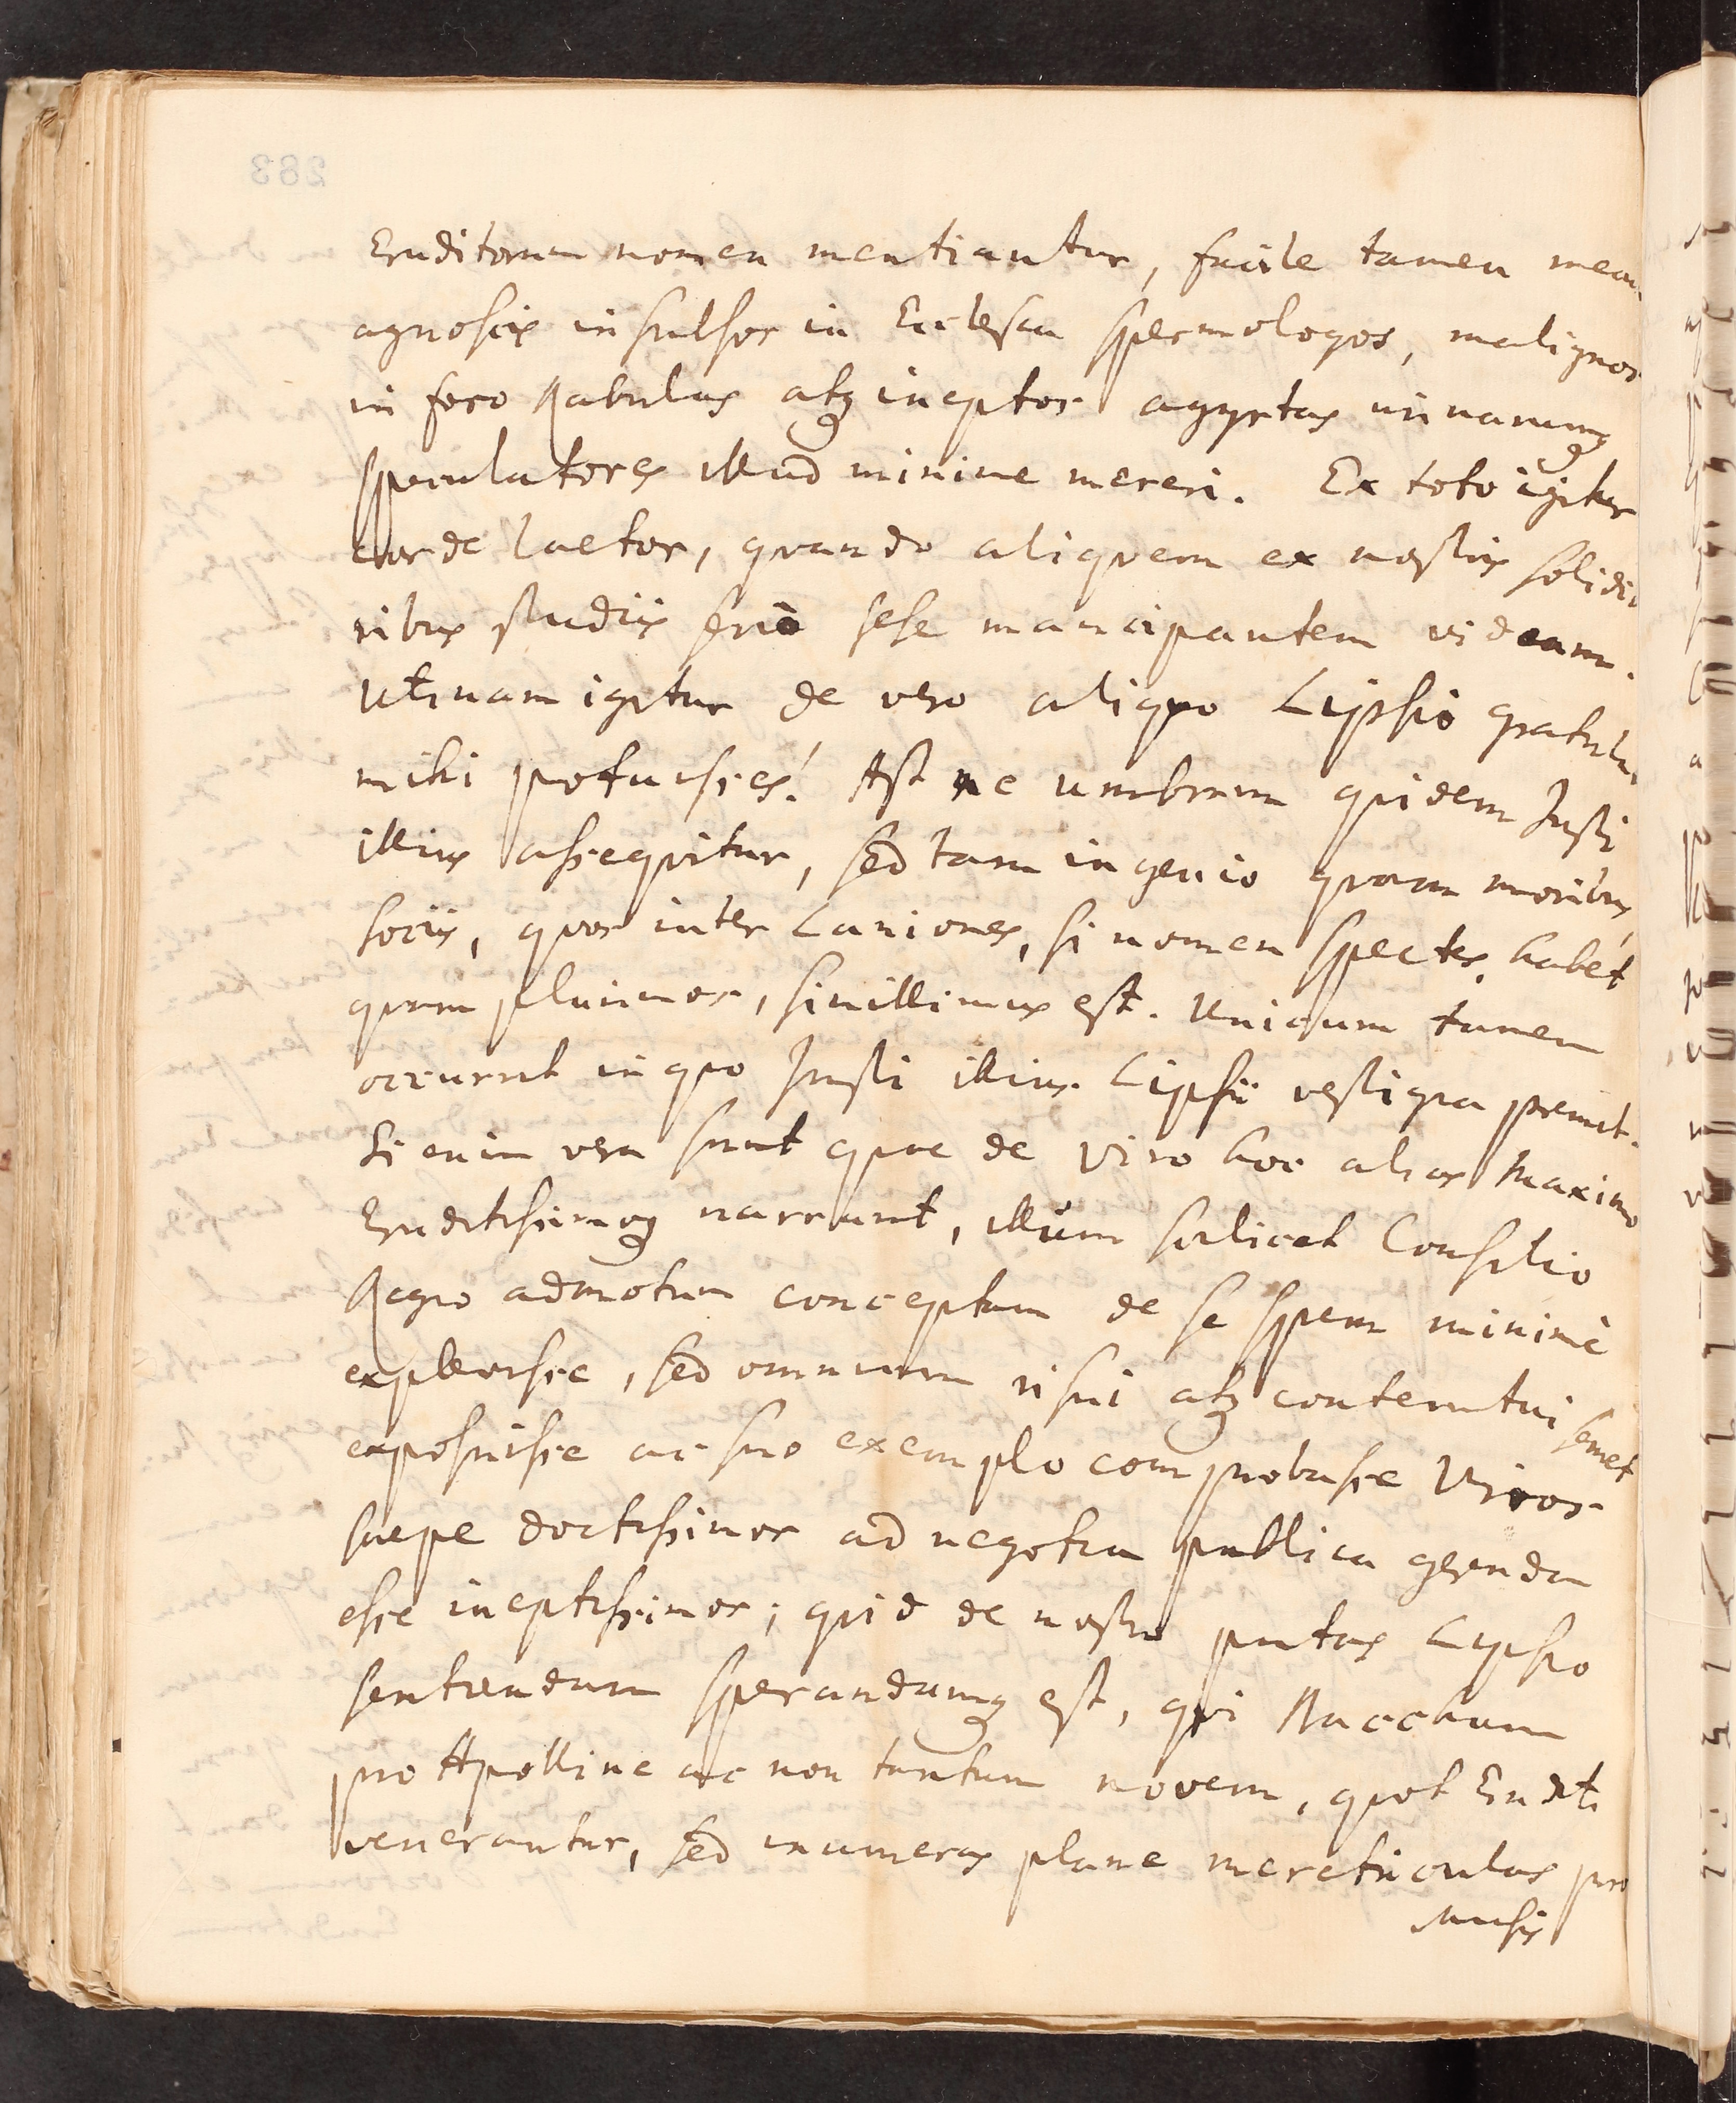 Eruditorum nomen mentiantur, facile tamen mecum
agnoscis insulsos in Ecclesia spermologos, malignos
in foro Rabulas atq ineptos agyrtas urinarumq
speculatores illud minime mereri. Ex toto igitur
corde laetor, quando aliquem ex nostris solidio
ribus studiis serio sese mancipantem videam.
Utinam igitur de vero aliquo Lipsio gratulari
mihi potuisses! Ast ne umbram quidem Justi
illius assequitur, sed tam ingenio quam moribus
sociis, quos inter Laniones, si nomen spectes, habet
quam plurimos, simillimus est. Unicum tamen
occurrit in quo Justi illius Lipsii vestigia premit.
Si enim vera sunt quae de Viro hoc alias Maximo
Eruditissimoq narrant, illum scilicet Consilio
Regio admotum conceptam de se spem minimè
explevisse, sed omnium risui atq contemtui semet
exposuisse ac suo exemplo comprobasse Viros
saepe doctissimos ad negotia publica gerenda
esse ineptissimos; quid de nostro putas Lipsio
sentiendum sperandumq est, qui Bacchum
pro Apolline ac non tantum novem, quot Eruditi
venerantur, sed innumeras plane meretriculas pro
Musis
283